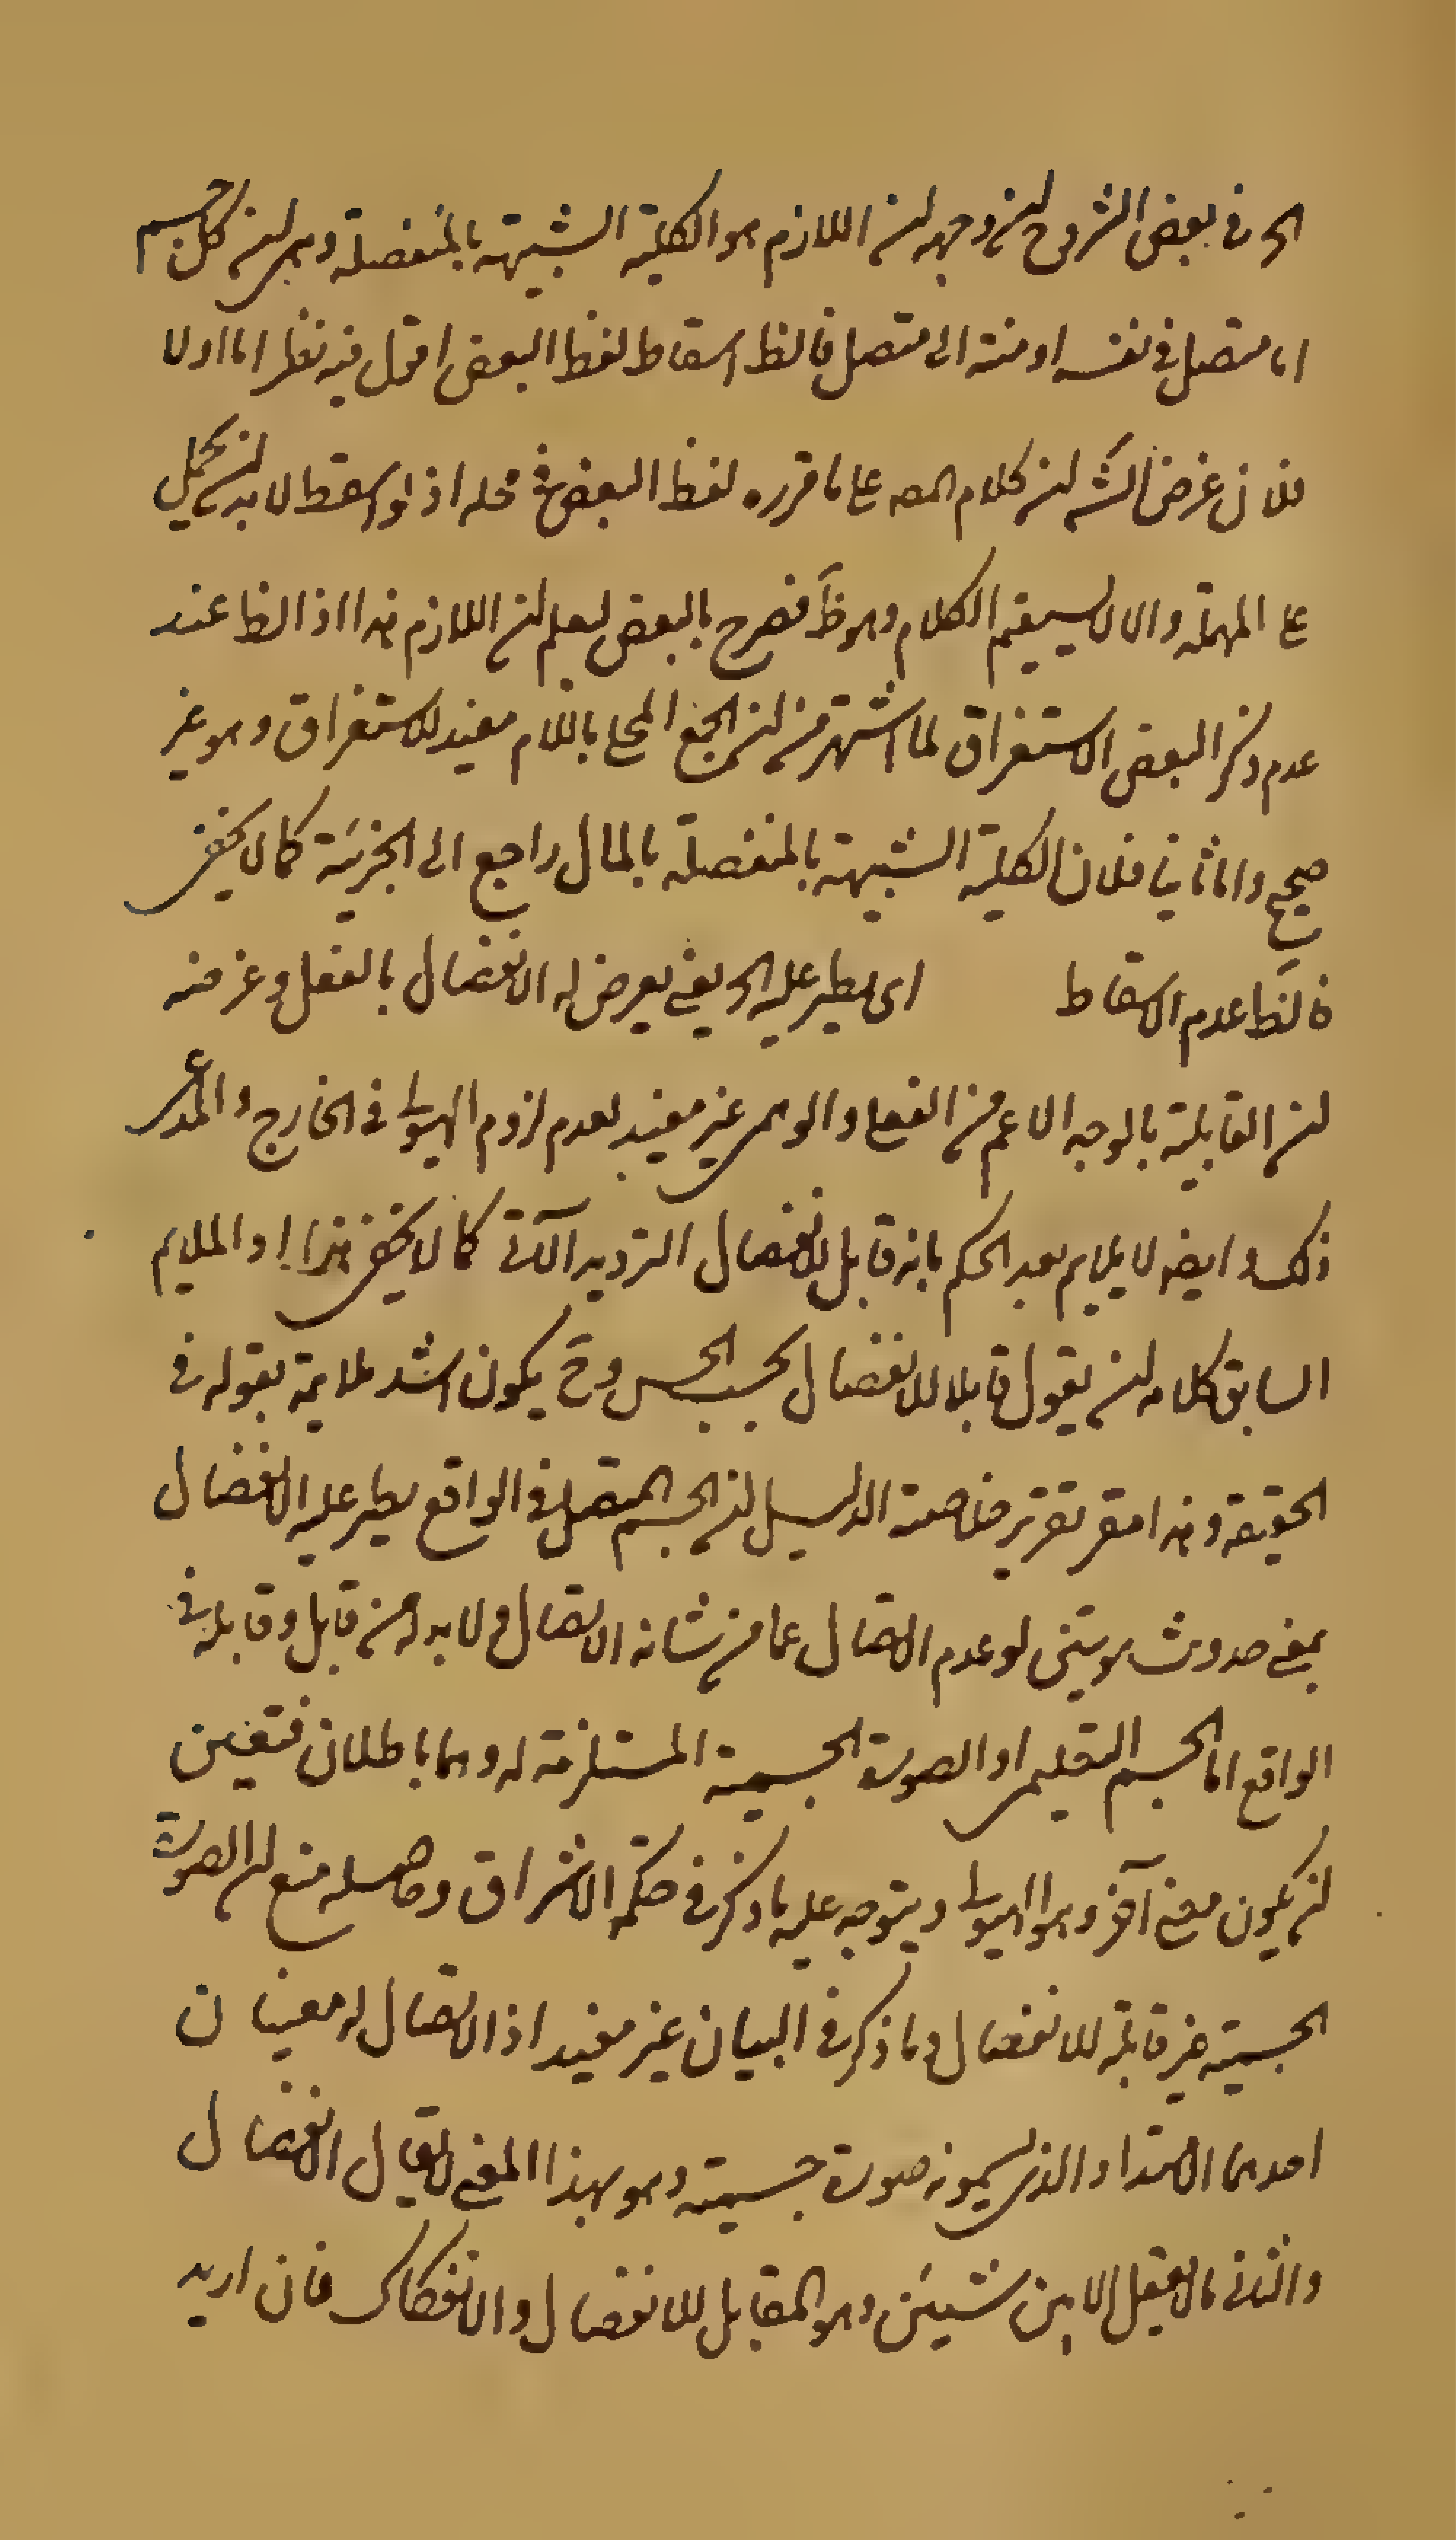 الخ في بعض الشروح ان وجهه ان اللازم هو الكلية الشبيهة بالمنفصلة وهي ان كل جسم
اما متصل في نفسه او منته الى متصل فالظ اسقاط لفظ البعض اقول فيه نظر اما اولا
فلان غرض الش ان كلام المصه عا ما قرره لفظ البعض في محله اذ لو اسقط لا بد ان يحمل
عا المهملة والا لا يستقيم الكلام وهو ظ فصرح بالبعض ليعلم ان اللازم هذا اذ الظا عند
عدم ذكر البعض الاستغراق لما اشتهر من ان الجمع المحلى باللام مفيد للاستغراق وهو غير
صحيح واما ثانيا فلان الكلية الشبيهة بالمنفصلة بالمال راجع الى الجزئية كما لا يخفى
فالظ عدم الاسقاط اى يطير عليه الخ يعني يعرض له الانفصال بالفعل وغرضه
ان القابلية بالوجه الاعم من الفعلى والوهمى غير مفيد لعدم لزوم الهيولى في الخارج والمدعى
ذلك وايضه لا يلايم بعد الحكم بانه قابل للانفصال الترديد الآتى كما لا يخفى هذا او الملايم
السابق كلامه ان يقول قابلا للانفصال بحسب الحس وح يكون اشد ملايمة بقوله في
الحقيقة وهذا تقرير خلاصة الدليل ان الجسم المتصل في الواقع يطير عليه الانفصال
بمعنى حدوث هويتين او عدم الاتصال عما من شانه الاتصال ولا بد له من قابل وقابله في
الواقع اما الجسم التعليمى او الصورة الجسمية المستلزمة له وهما باطلان فتعين
ان يكون معنى آخر وهو الهيولى ويتوجه عليه ما ذكر في حكمة الاشراق وحاصله منع ان الصورة
الجسمية غير قابلة للانفصال وما ذكر في البيان غير مفيد اذ الاتصال له معنيان
احدهما الامتداد الذى يسمونه صورة جسمية وهو بهذا المعنى لا يقابل الانفصال
والثانى ما لا يعقل الا بين شيئين وهو المقابل للانفصال والانفكاك فان اريد